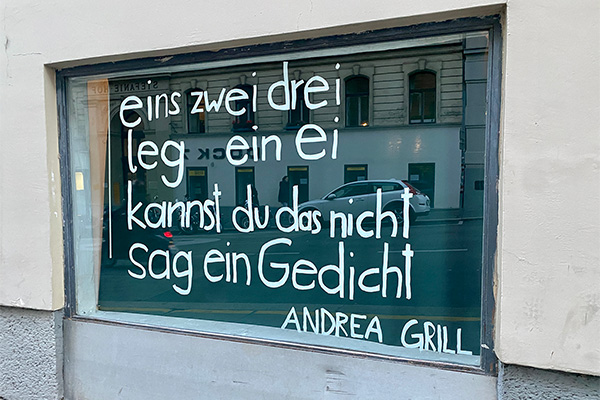 eins zwei drei
leg ein ei
kannst du das nicht
sag ein Gedicht
ANDREA GRILL